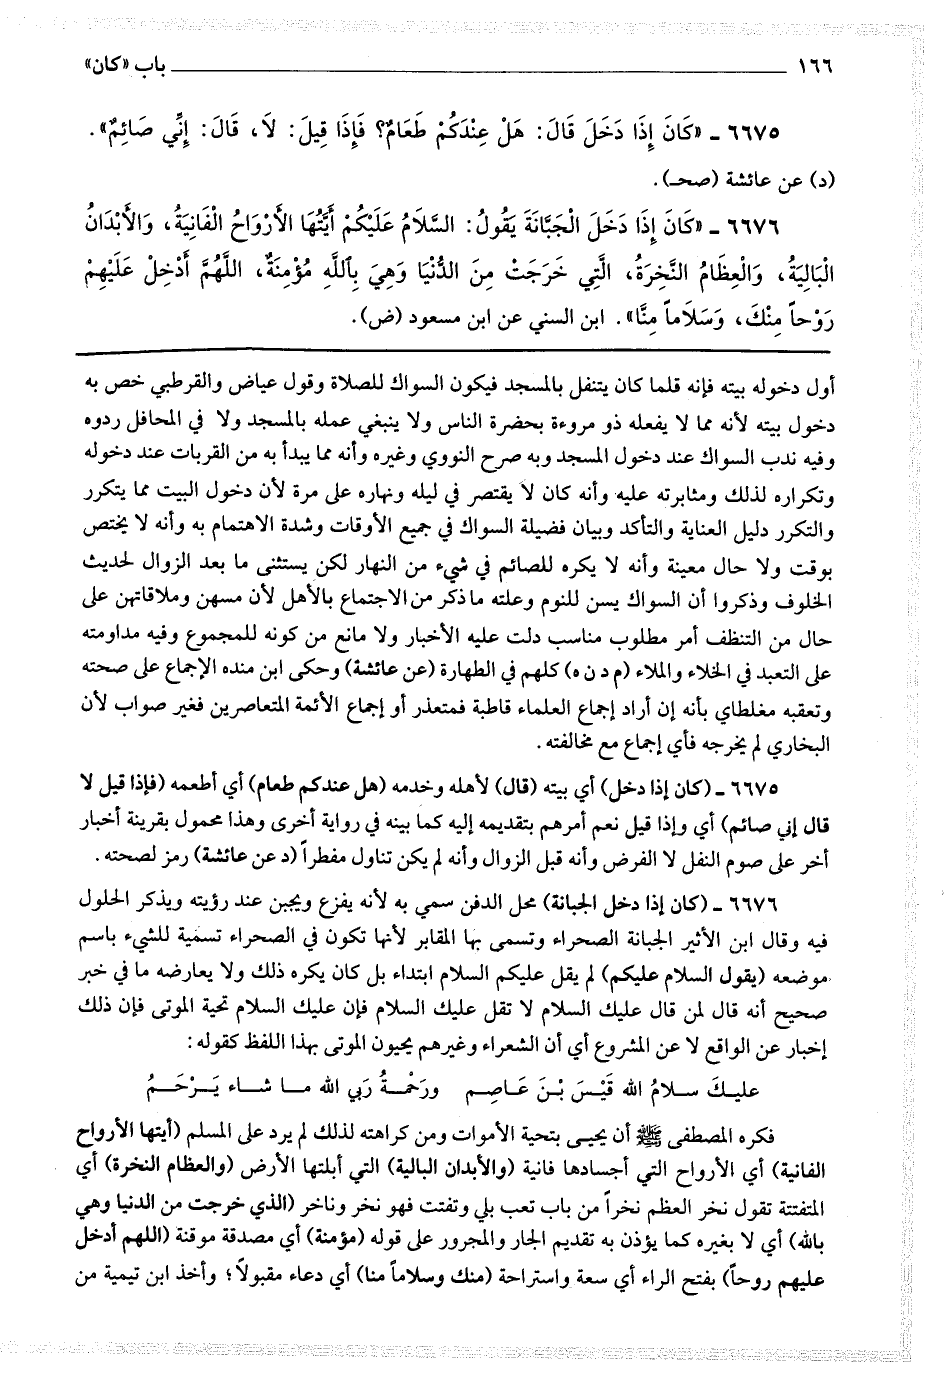 ١٦٦ باب «كان»
٦٦٧٥ ـ «كَانَ إِذَا دَخَلَ قَالَ: هَلْ عِنْدَكُمْ طَعَامٌ؟ فَإِذَا قِيلَ: لَا، قَالَ: إِنِّي صَائِمٌ».
(د) عن عائشة (صحـ).
٦٦٧٦ ـ «كَانَ إِذَا دَخَلَ الْجَبَّانَةَ يَقُولُ: السَّلَامُ عَلَيْكُمْ أَيَّتُهَا الأَرْوَاحُ الْفَانِيَةُ، وَالأَبْدَانُ
الْبَالِيَةُ، وَالْعِظَامُ النَّخِرَةُ، الَّتِي خَرَجَتْ مِنَ الدُّنْيَا وَهِيَ بِٱللَّهِ مُؤْمِنَةٌ، اللَّهُمَّ أَدْخِلْ عَلَيْهِمْ
رَوْحاً مِنْكَ، وَسَلَاماً مِنَّا». ابن السني عن ابن مسعود (ض).
أول دخوله بيته فإنه قلما كان يتنفل بالمسجد فيكون السواك للصلاة وقول عياض والقرطبي خص به
دخول بيته لأنه مما لا يفعله ذو مروءة بحضرة الناس ولا ينبغي عمله بالمسجد ولا في المحافل ردوه
وفيه ندب السواك عند دخول المسجد وبه صرح النووي وغيره وأنه مما يبدأ به من القربات عند دخوله
وتكراره لذلك ومثابرته عليه وأنه كان لا يقتصر في ليله ونهاره على مرة لأن دخول البيت مما يتكرر
والتكرر دليل العناية والتأكد وبيان فضيلة السواك في جميع الأوقات وشدة الاهتمام به وأنه لا يختص
بوقت ولا حال معينة وأنه لا يكره للصائم في شيء من النهار لكن يستثنى ما بعد الزوال لحديث
الخلوف وذكروا أن السواك يسن للنوم وعلته ما ذكر من الاجتماع بالأهل لأن مسهن وملاقاتهن على
حال من التنظف أمر مطلوب مناسب دلت عليه الأخبار ولا مانع من كونه للمجموع وفيه مداومته
على التعبد في الخلاء والملاء (م د ن ه) كلهم في الطهارة (عن عائشة) وحكى ابن منده الإجماع على صحته
وتعقبه مغلطاي بأنه إن أراد إجماع العلماء قاطبة فمتعذر أو إجماع الأئمة المتعاصرين فغير صواب لأن
البخاري لم يخرجه فأي إجماع مع مخالفته.
٦٦٧٥ ـ (كان إذا دخل) أي بيته (قال) لأهله وخدمه (هل عندكم طعام) أي أطعمه (فإذا قيل لا
قال إني صائم) أي وإذا قيل نعم أمرهم بتقديمه إليه كما بينه في رواية أخرى وهذا محمول بقرينة أخبار
أخر على صوم النفل لا الفرض وأنه قبل الزوال وأنه لم يكن تناول مفطراً (د عن عائشة) رمز لصحته.
٦٦٧٦ ـ (كان إذا دخل الجبانة) محل الدفن سمي به لأنه يفزع ويجبن عند رؤيته ويذكر الحلول
فيه وقال ابن الأثير الجبانة الصحراء وتسمى بها المقابر لأنها تكون في الصحراء تسمية للشيء باسم
موضعه (يقول السلام عليكم) لم يقل عليكم السلام ابتداء بل كان يكره ذلك ولا يعارضه ما في خبر
صحيح أنه قال لمن قال عليك السلام لا تقل عليك السلام فإن عليك السلام تحية الموتى فإن ذلك
إخبار عن الواقع لا عن المشروع أي أن الشعراء وغيرهم يحيون الموتى بهذا اللفظ كقوله:
عليـك سـلامُ الله قَيْسَ بْنَ عَاصِـم ورَحْمَـةُ رَبي الله مـا شـاء يَـرْحَـمُ
فكره المصطفى ﷺ أن يحيـى بتحية الأموات ومن كراهته لذلك لم يرد على المسلم (أيتها الأرواح
الفانية) أي الأرواح التي أجسادها فانية (والأبدان البالية) التي أبلتها الأرض (والعظام النخرة) أي
المتفتتة تقول نخر العظم نخراً من باب تعب بلي وتفتت فهو نخر وناخر (الذي خرجت من الدنيا وهي
بالله) أي لا بغيره كما يؤذن به تقديم الجار والمجرور على قوله (مؤمنة) أي مصدقة موقنة (اللهم أدخل
عليهم روحاً) بفتح الراء أي سعة واستراحة (منك وسلاماً منا) أي دعاء مقبولاً؛ وأخذ ابن تيمية من